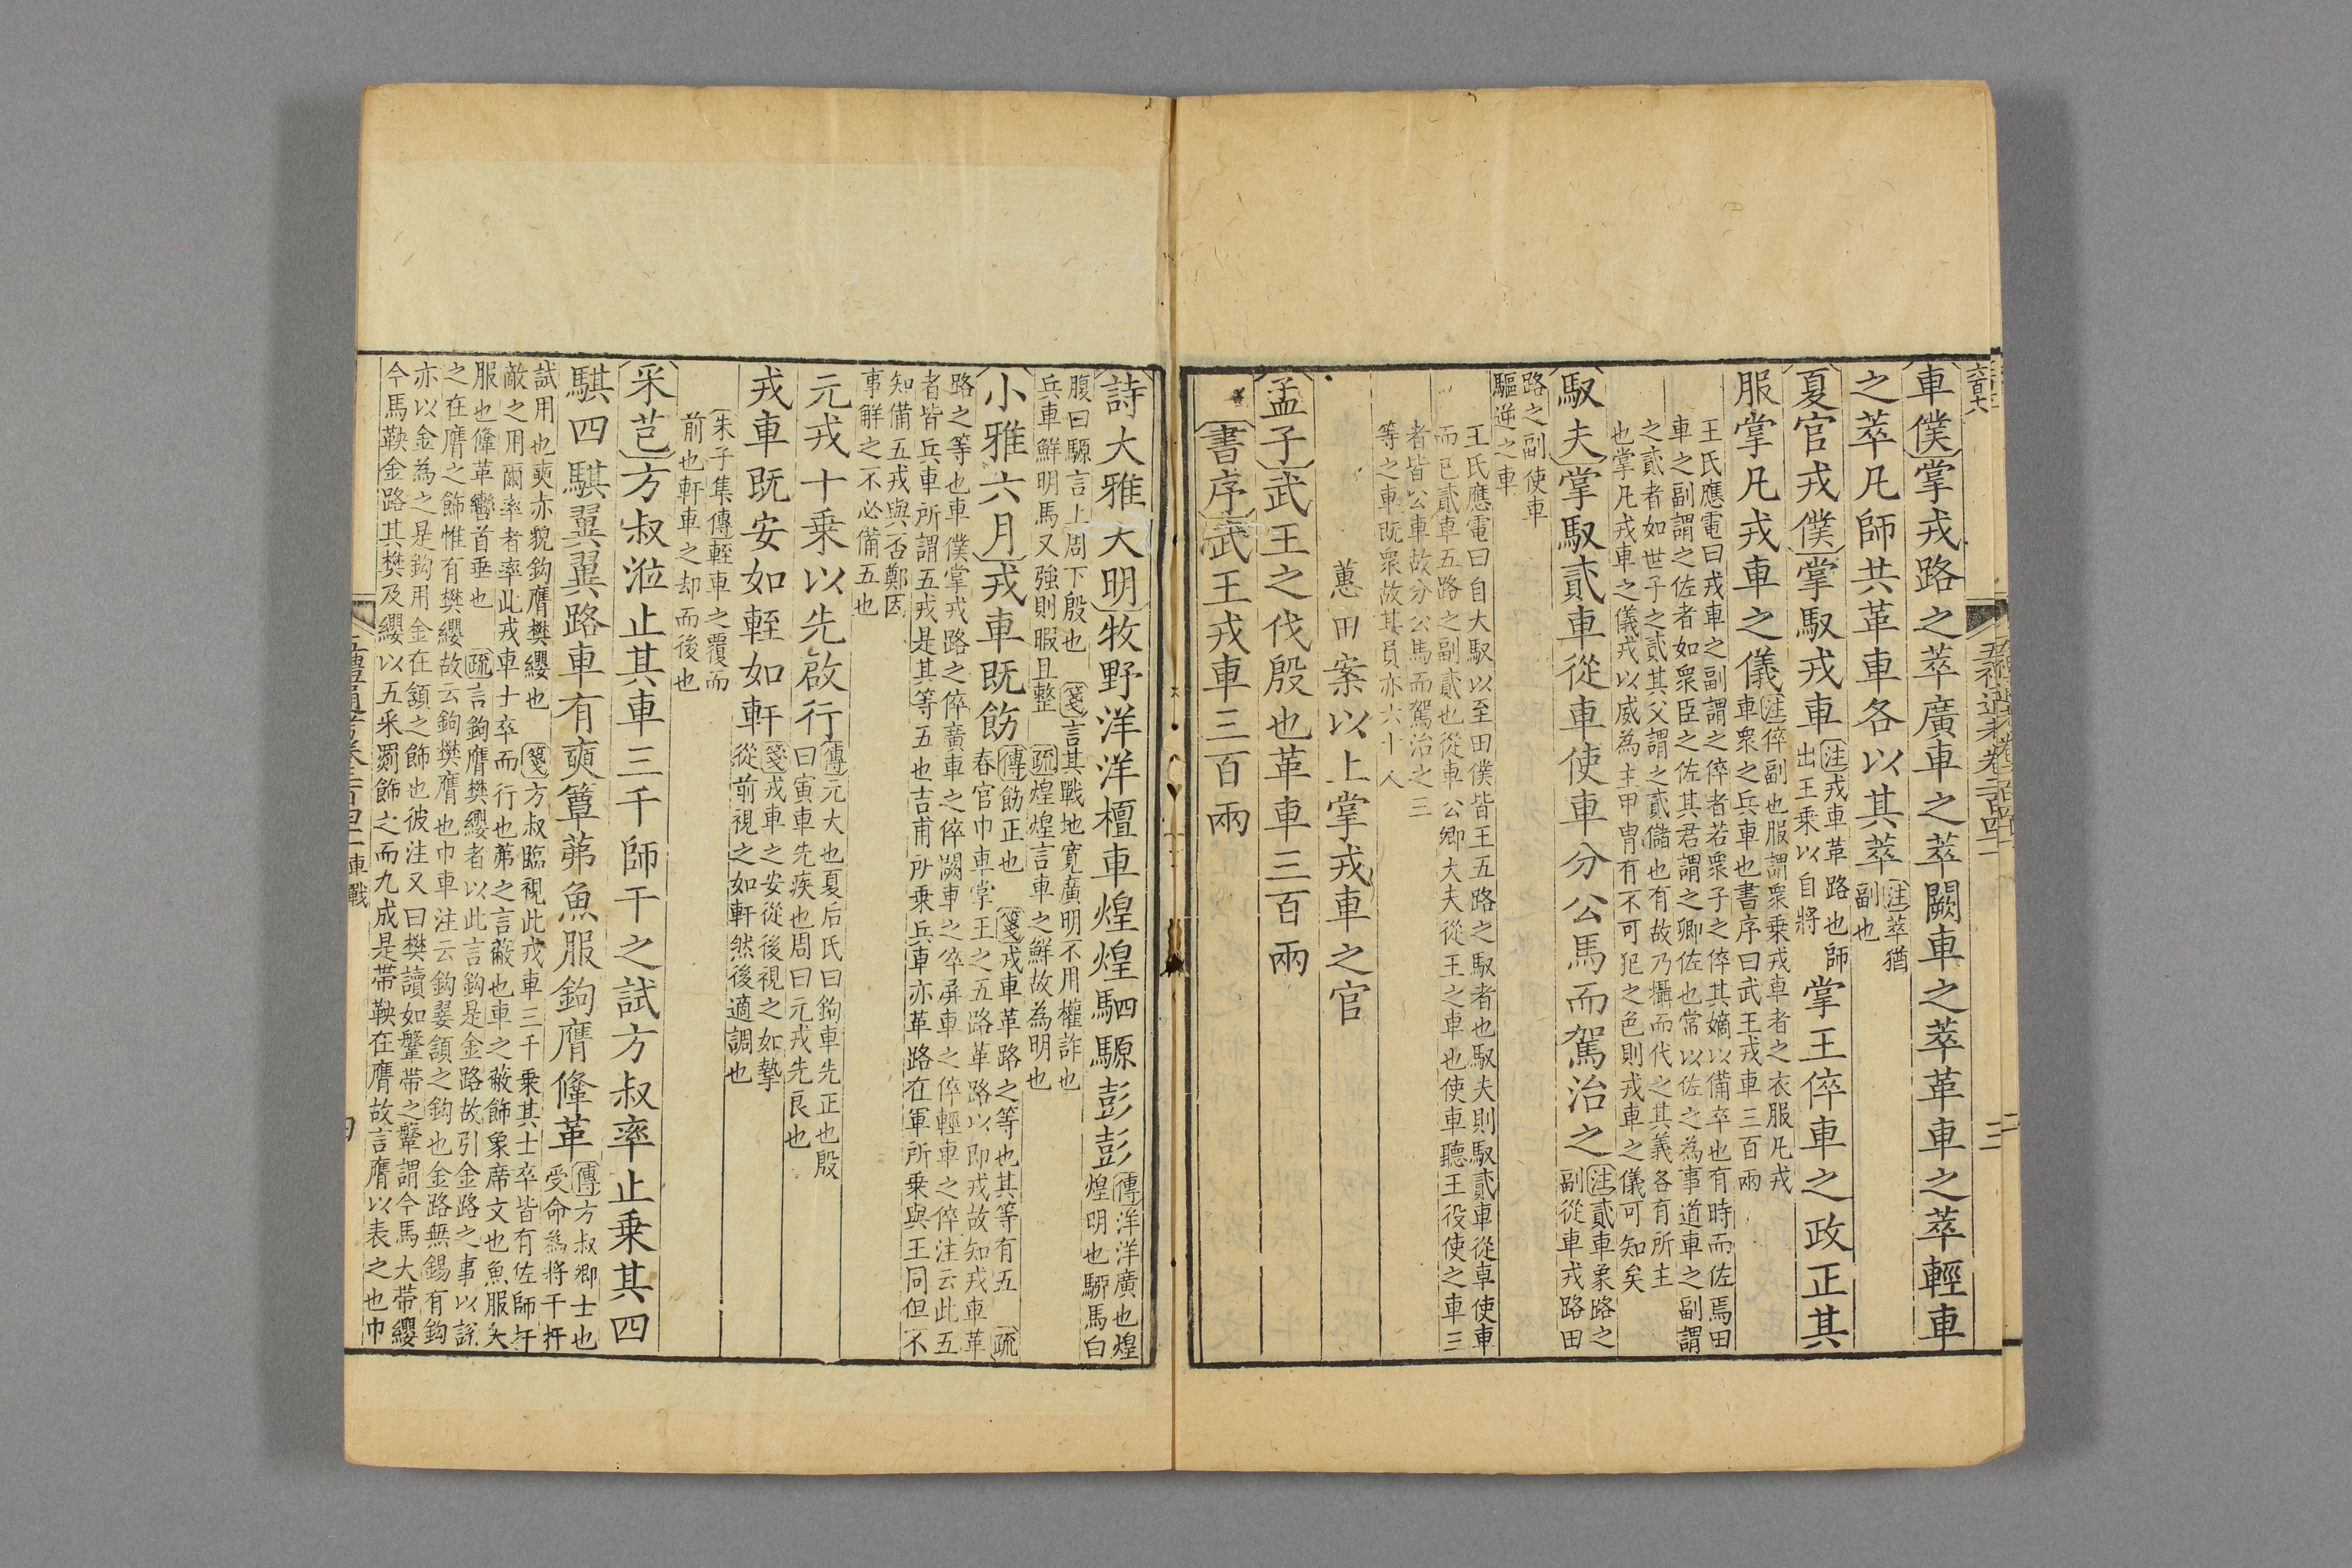 車僕掌戎路之萃廣車之萃闕車之萃革車之萃輕車
之萃凡師共革車各以其萃注萃猶
副也
夏官戎僕掌馭戎車注戎車革路也師
出王乘以自將掌王倅車之政正其
服掌凡戎車之儀注倅副也服謂衆乘戎車者之衣服凡戎
車衆之兵車也書序曰武王戎車三百兩
王氏應電曰戎車之副謂之倅者若衆子之倅其嫡以備卒也有時而佐焉田
車之副謂之佐者如衆臣之佐其君謂之卿佐也常以佐之為事道車之副謂
之貳者如世子之貳其父謂之貳儲也有故乃攝而代之其義各有所主
也掌凡戎車之儀戎以威為主甲胄有不可犯之色則戎車之儀可知矣
馭夫掌馭貳車從車使車分公馬而駕治之注貳車象路之
副從車戎路田
路之副使車
驅逆之車
王氏應電曰自大馭以至田僕皆王五路之馭者也馭夫則馭貳車從車使車
而已貳車五路之副貳也從車公卿大夫從王之車也使車聽王役使之車三
者皆公車故分公馬而駕治之三
等之車既衆故其員亦六十人
蕙田案以上掌戎車之官
孟子武王之伐殷也革車三百兩
書序武王戎車三百兩
詩大雅大明牧野洋洋檀車煌煌駟騵彭彭傳洋洋廣也煌
煌明也駵馬白
腹曰騵言上周下殷也箋言其戰地寬廣明不用權詐也
兵車鮮明馬又強則暇且整疏煌煌言車之鮮故為明也
小雅六月戎車既飭傳飭正也箋戎車革路之等也其等有五疏
春官巾車掌王之五路革路以即戎故知戎車革
路之等也車僕掌戎路之倅廣車之倅闕車之倅屏車之倅輕車之倅注云此五
者皆兵車所謂五戎是其等五也吉甫所乘兵車亦革路在軍所乘與王同但不
知備五戎與否鄭因
事解之不必備五也
元戎十乘以先啟行傳元大也夏后氏曰鉤車先正也殷
曰寅車先疾也周曰元戎先良也
戎車既安如輊如軒箋戎車之安從後視之如摯
從前視之如軒然後適調也
朱子集傳輊車之覆而
前也軒車之却而後也
采芑方叔涖止其車三千師干之試方叔率止乘其四
騏四騏翼翼路車有奭簟茀魚服鉤膺鞗革傳方叔卿士也
受命為將干扞
試用也奭赤貌鉤膺樊纓也箋方叔臨視此戎車三千乘其士卒皆有佐師扞
敵之用爾率者率此戎車士卒而行也茀之言蔽也車之蔽飾象席文也魚服矢
服也鞗革轡首垂也疏言鉤膺樊纓者以此言鉤是金路故引金路之事以說
之在膺之飾惟有樊纓故云鉤樊膺也巾車注云鉤婁頷之鉤也金路無錫有鉤
亦以金為之是鉤用金在頷之飾也彼注又曰樊讀如鞶帶之鞶謂今馬大帶纓
今馬鞅金路其樊及纓以五采罽飾之而九成是帶鞅在膺故言膺以表之也巾